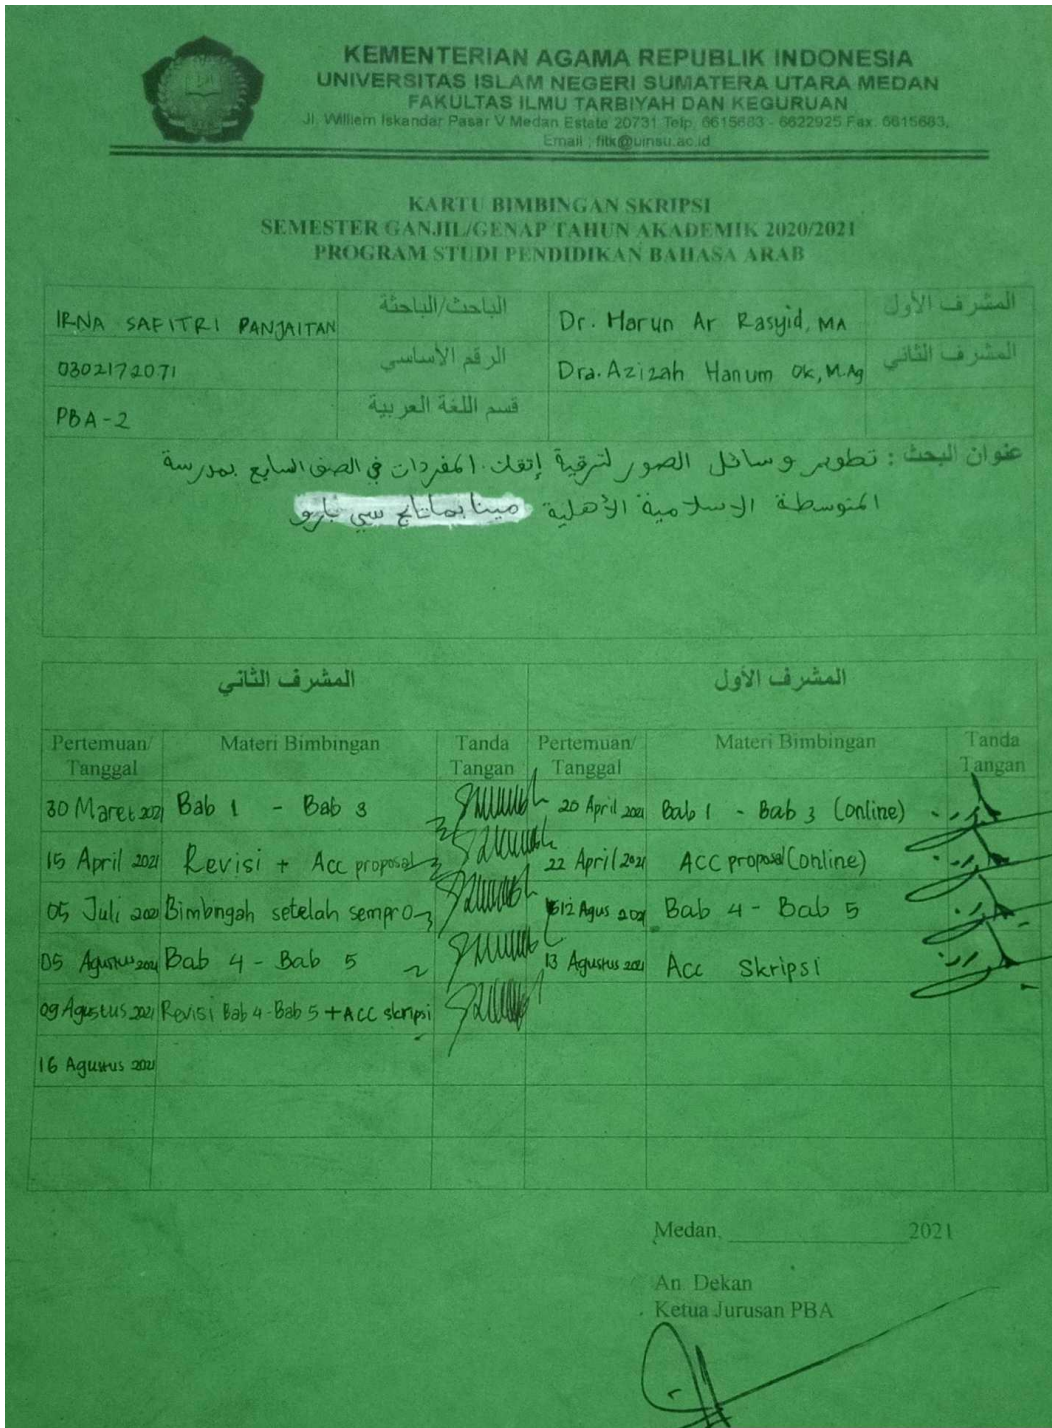 KEMENTERIAN AGAMA REPUBLIK INDONESIA
UNIVERSITAS ISLAM NEGERI SUMATERA UTARA MEDAN
FAKULTAS ILMU TARBIYAH DAN KEGURUAN
Jl. Williem Iskandar Pasar V Medan Estate 20731 Telp. 6615683 - 6622925 Fax. 6615683,
Email : fitk@uinsu.ac.id
KARTU BIMBINGAN SKRIPSI
SEMESTER GANJIL/GENAP TAHUN AKADEMIK 2020/2021
PROGRAM STUDI PENDIDIKAN BAHASA ARAB
IRNA SAFITRI PANJAITAN الباحث/الباحثة Dr. Harun Ar Rasyid, MA المشرف الأول
0302172071 الرقم الأساسي Dra. Azizah Hanum OK, M.Ag المشرف الثاني
PBA-2 قسم اللغة العربية
عنوان البحث : تطوير وسائل الصور لترقية إتقان المفردات في الصف السابع بمدرسة
المتوسطة الاسلامية الأهلية
المشرف الثاني المشرف الأول
Pertemuan/ Materi Bimbingan Tanda Pertemuan/ Materi Bimbingan Tanda
Tanggal Tangan Tanggal Tangan
30 Maret 2021 Bab 1 - Bab 3 20 April 2021 Bab 1 - Bab 3 (online)
15 April 2021 Revisi + Acc proposal 22 April 2021 ACC proposal (online)
05 Juli 2021 Bimbingan setelah sempro 12 Agus 2021 Bab 4 - Bab 5
05 Agustus 2021 Bab 4 - Bab 5 13 Agustus 2021 Acc Skripsi
09 Agustus 2021 Revisi Bab 4 - Bab 5 + ACC skripsi
16 Agustus 2021
Medan, 2021
An. Dekan
Ketua Jurusan PBA